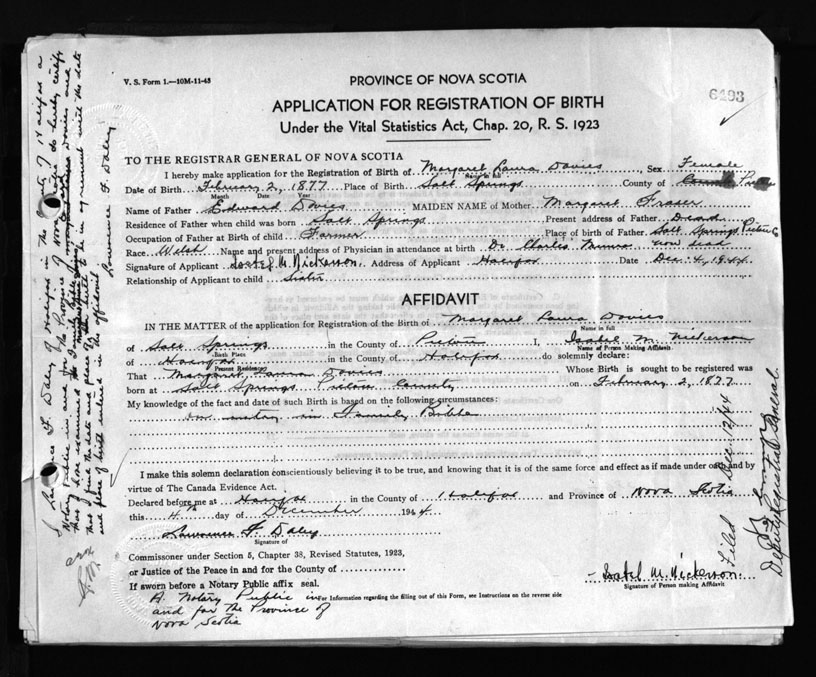 V. S. Form 1.—10M-11-43
PROVINCE OF NOVA SCOTIA
6493
APPLICATION FOR REGISTRATION OF BIRTH
Under the Vital Statistics Act, Chap. 20, R. S. 1923
TO THE REGISTRAR GENERAL OF NOVA SCOTIA
I hereby make application for the Registration of Birth of Margaret Laura Davies, Sex Female
Name in full
Date of Birth February 2, 1877 Place of Birth Salt Springs County of Pictou
Month Date Year
Name of Father Edward Davies MAIDEN NAME of Mother Margaret Fraser
Residence of Father when child was born Salt Springs Present address of Father Dead
Occupation of Father at Birth of child Farmer Place of birth of Father Salt Springs, Pictou Co
Race Welsh Name and present address of Physician in attendance at birth Dr Charles Munro now dead
Signature of Applicant Isabel M. Nickerson. Address of Applicant Halifax Date Dec. 4, 1944
Relationship of Applicant to child Sister
AFFIDAVIT
IN THE MATTER of the application for Registration of the Birth of Margaret Laura Davies
Name in full
of Salt Springs in the County of Pictou I, Isabel M. Nickerson
Birth Place Name of Person Making Affidavit
of Halifax in the County of Halifax do solemnly declare:
Present Residence
That Margaret Laura Davies Whose Birth is sought to be registered was
born at Salt Springs Pictou County on February 2, 1877
My knowledge of the fact and date of such Birth is based on the following circumstances:
entry in Family Bible
I make this solemn declaration conscientiously believing it to be true, and knowing that it is of the same force and effect as if made under oath and by
virtue of The Canada Evidence Act.
Declared before me at Halifax in the County of Halifax and Province of Nova Scotia
this 4th day of December 1944
Lawrence F Daley
Signature of
Commissioner under Section 5, Chapter 38, Revised Statutes, 1923,
or Justice of the Peace in and for the County of
If sworn before a Notary Public affix seal.
Isabel M. Nickerson
Signature of Person making Affidavit
For Information regarding the filling out of this Form, see Instructions on the reverse side
A Notary Public in
and for The Province of
Nova Scotia
I Lawrence F. Daley of Halifax in the County of Halifax a
Notary Public in and for the Province of Nova Scotia do hereby certify
that I have examined the Family Bible Davies and
that I find the date and place of birth to be in agreement with the date
and place of birth entered in the affidavit
Lawrence F Daley
Filed Dec 12/44
Deputy Registrar General.